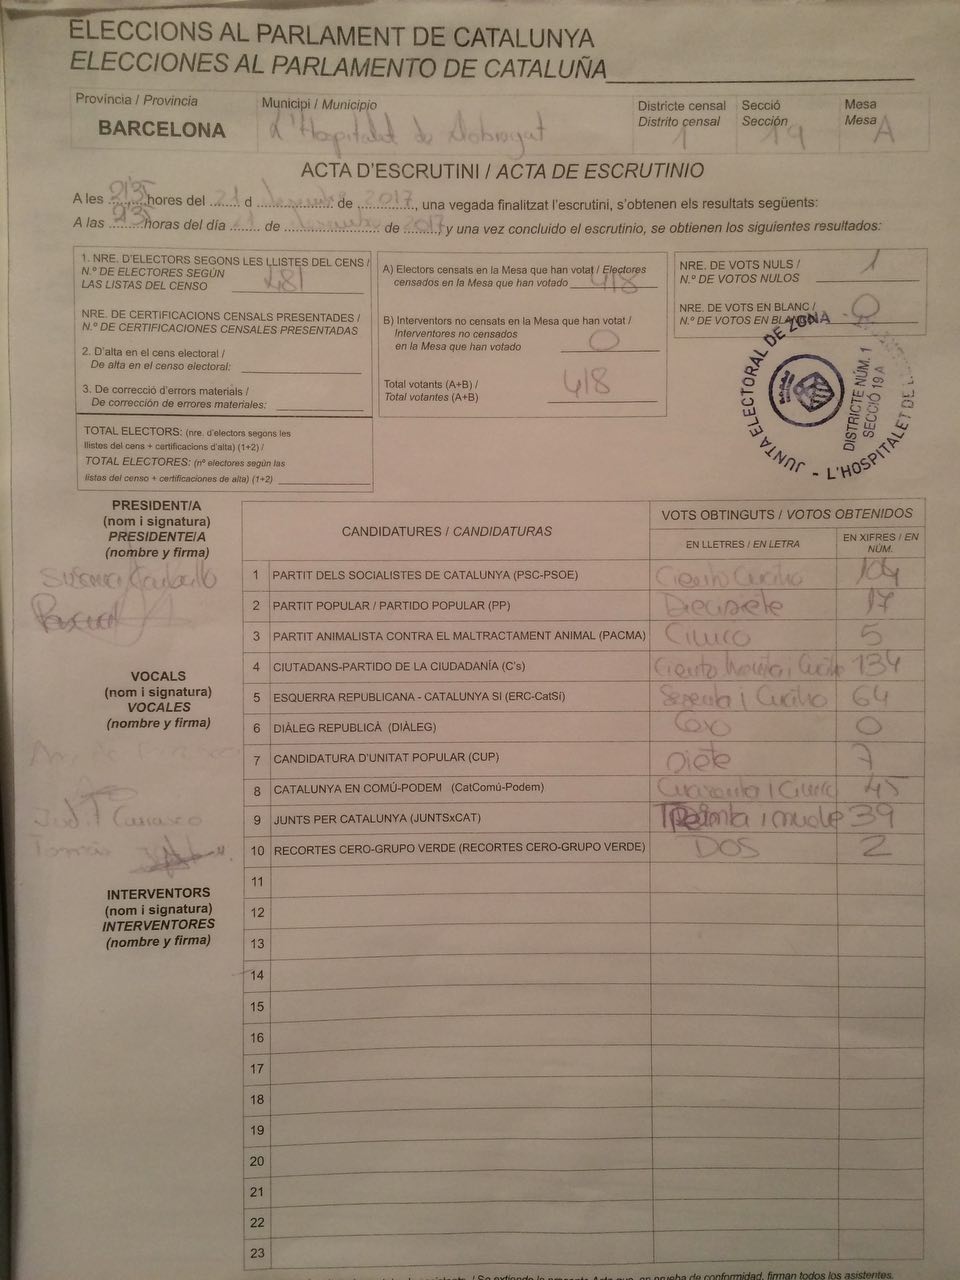 ELECCIONS AL PARLAMENT DE CATALUNYA
ELECCIONES AL PARLAMENTO DE CATALUÑA
Província / Provincia
BARCELONA
Municipi / Municipio
L'Hospitalet de Llobregat
Districte censal
Distrito censal
1
Secció
Sección
19
Mesa
Mesa
A
ACTA D'ESCRUTINI / ACTA DE ESCRUTINIO
A les hores del 21 d de 2017, una vegada finalitzat l'escrutini, s'obtenen els resultats següents:
A las horas del día 21 de de 2017, y una vez concluido el escrutinio, se obtienen los siguientes resultados:
1. NRE. D'ELECTORS SEGONS LES LLISTES DEL CENS /
N.º DE ELECTORES SEGÚN
LAS LISTAS DEL CENSO 481
NRE. DE CERTIFICACIONS CENSALS PRESENTADES /
N.º DE CERTIFICACIONES CENSALES PRESENTADAS
2. D'alta en el cens electoral /
De alta en el censo electoral:
3. De correcció d'errors materials /
De corrección de errores materiales:
TOTAL ELECTORS: (nre. d'electors segons les
llistes del cens + certificacions d'alta) (1+2) /
TOTAL ELECTORES: (nº electores según las
listas del censo + certificaciones de alta) (1+2)
A) Electors censats en la Mesa que han votat / Electores
censados en la Mesa que han votado 418
B) Interventors no censats en la Mesa que han votat /
Interventores no censados
en la Mesa que han votado 0
Total votants (A+B) /
Total votantes (A+B) 418
NRE. DE VOTS NULS /
N.º DE VOTOS NULOS 1
NRE. DE VOTS EN BLANC /
N.º DE VOTOS EN BLANCO 0
JUNTA ELECTORAL DE ZONA
DISTRICTE NÚM. 1
SECCIÓ 19 A
L'HOSPITALET DE
PRESIDENT/A
(nom i signatura)
PRESIDENTE/A
(nombre y firma)
VOCALS
(nom i signatura)
VOCALES
(nombre y firma)
Judit Carrasco
Tomás
INTERVENTORS
(nom i signatura)
INTERVENTORES
(nombre y firma)
CANDIDATURES / CANDIDATURAS
VOTS OBTINGUTS / VOTOS OBTENIDOS
EN LLETRES / EN LETRA
EN XIFRES / EN
NÚM.
1 PARTIT DELS SOCIALISTES DE CATALUNYA (PSC-PSOE) Ciento Cuatro 104
2 PARTIT POPULAR / PARTIDO POPULAR (PP) Diecisiete 17
3 PARTIT ANIMALISTA CONTRA EL MALTRACTAMENT ANIMAL (PACMA) Cinco 5
4 CIUTADANS-PARTIDO DE LA CIUDADANÍA (C's) 134
5 ESQUERRA REPUBLICANA - CATALUNYA SI (ERC-CatSí) Sesenta i Cuatro 64
6 DIÀLEG REPUBLICÀ (DIÀLEG) 0
7 CANDIDATURA D'UNITAT POPULAR (CUP) Siete 7
8 CATALUNYA EN COMÚ-PODEM (CatComú-Podem) Cuarenta i Cinco 45
9 JUNTS PER CATALUNYA (JUNTSxCAT) Treinta i nueve 39
10 RECORTES CERO-GRUPO VERDE (RECORTES CERO-GRUPO VERDE) DOS 2
11
12
13
14
15
16
17
18
19
20
21
22
23
Se extiende la presente Acta que, en prueba de conformidad, firman todos los asistentes.